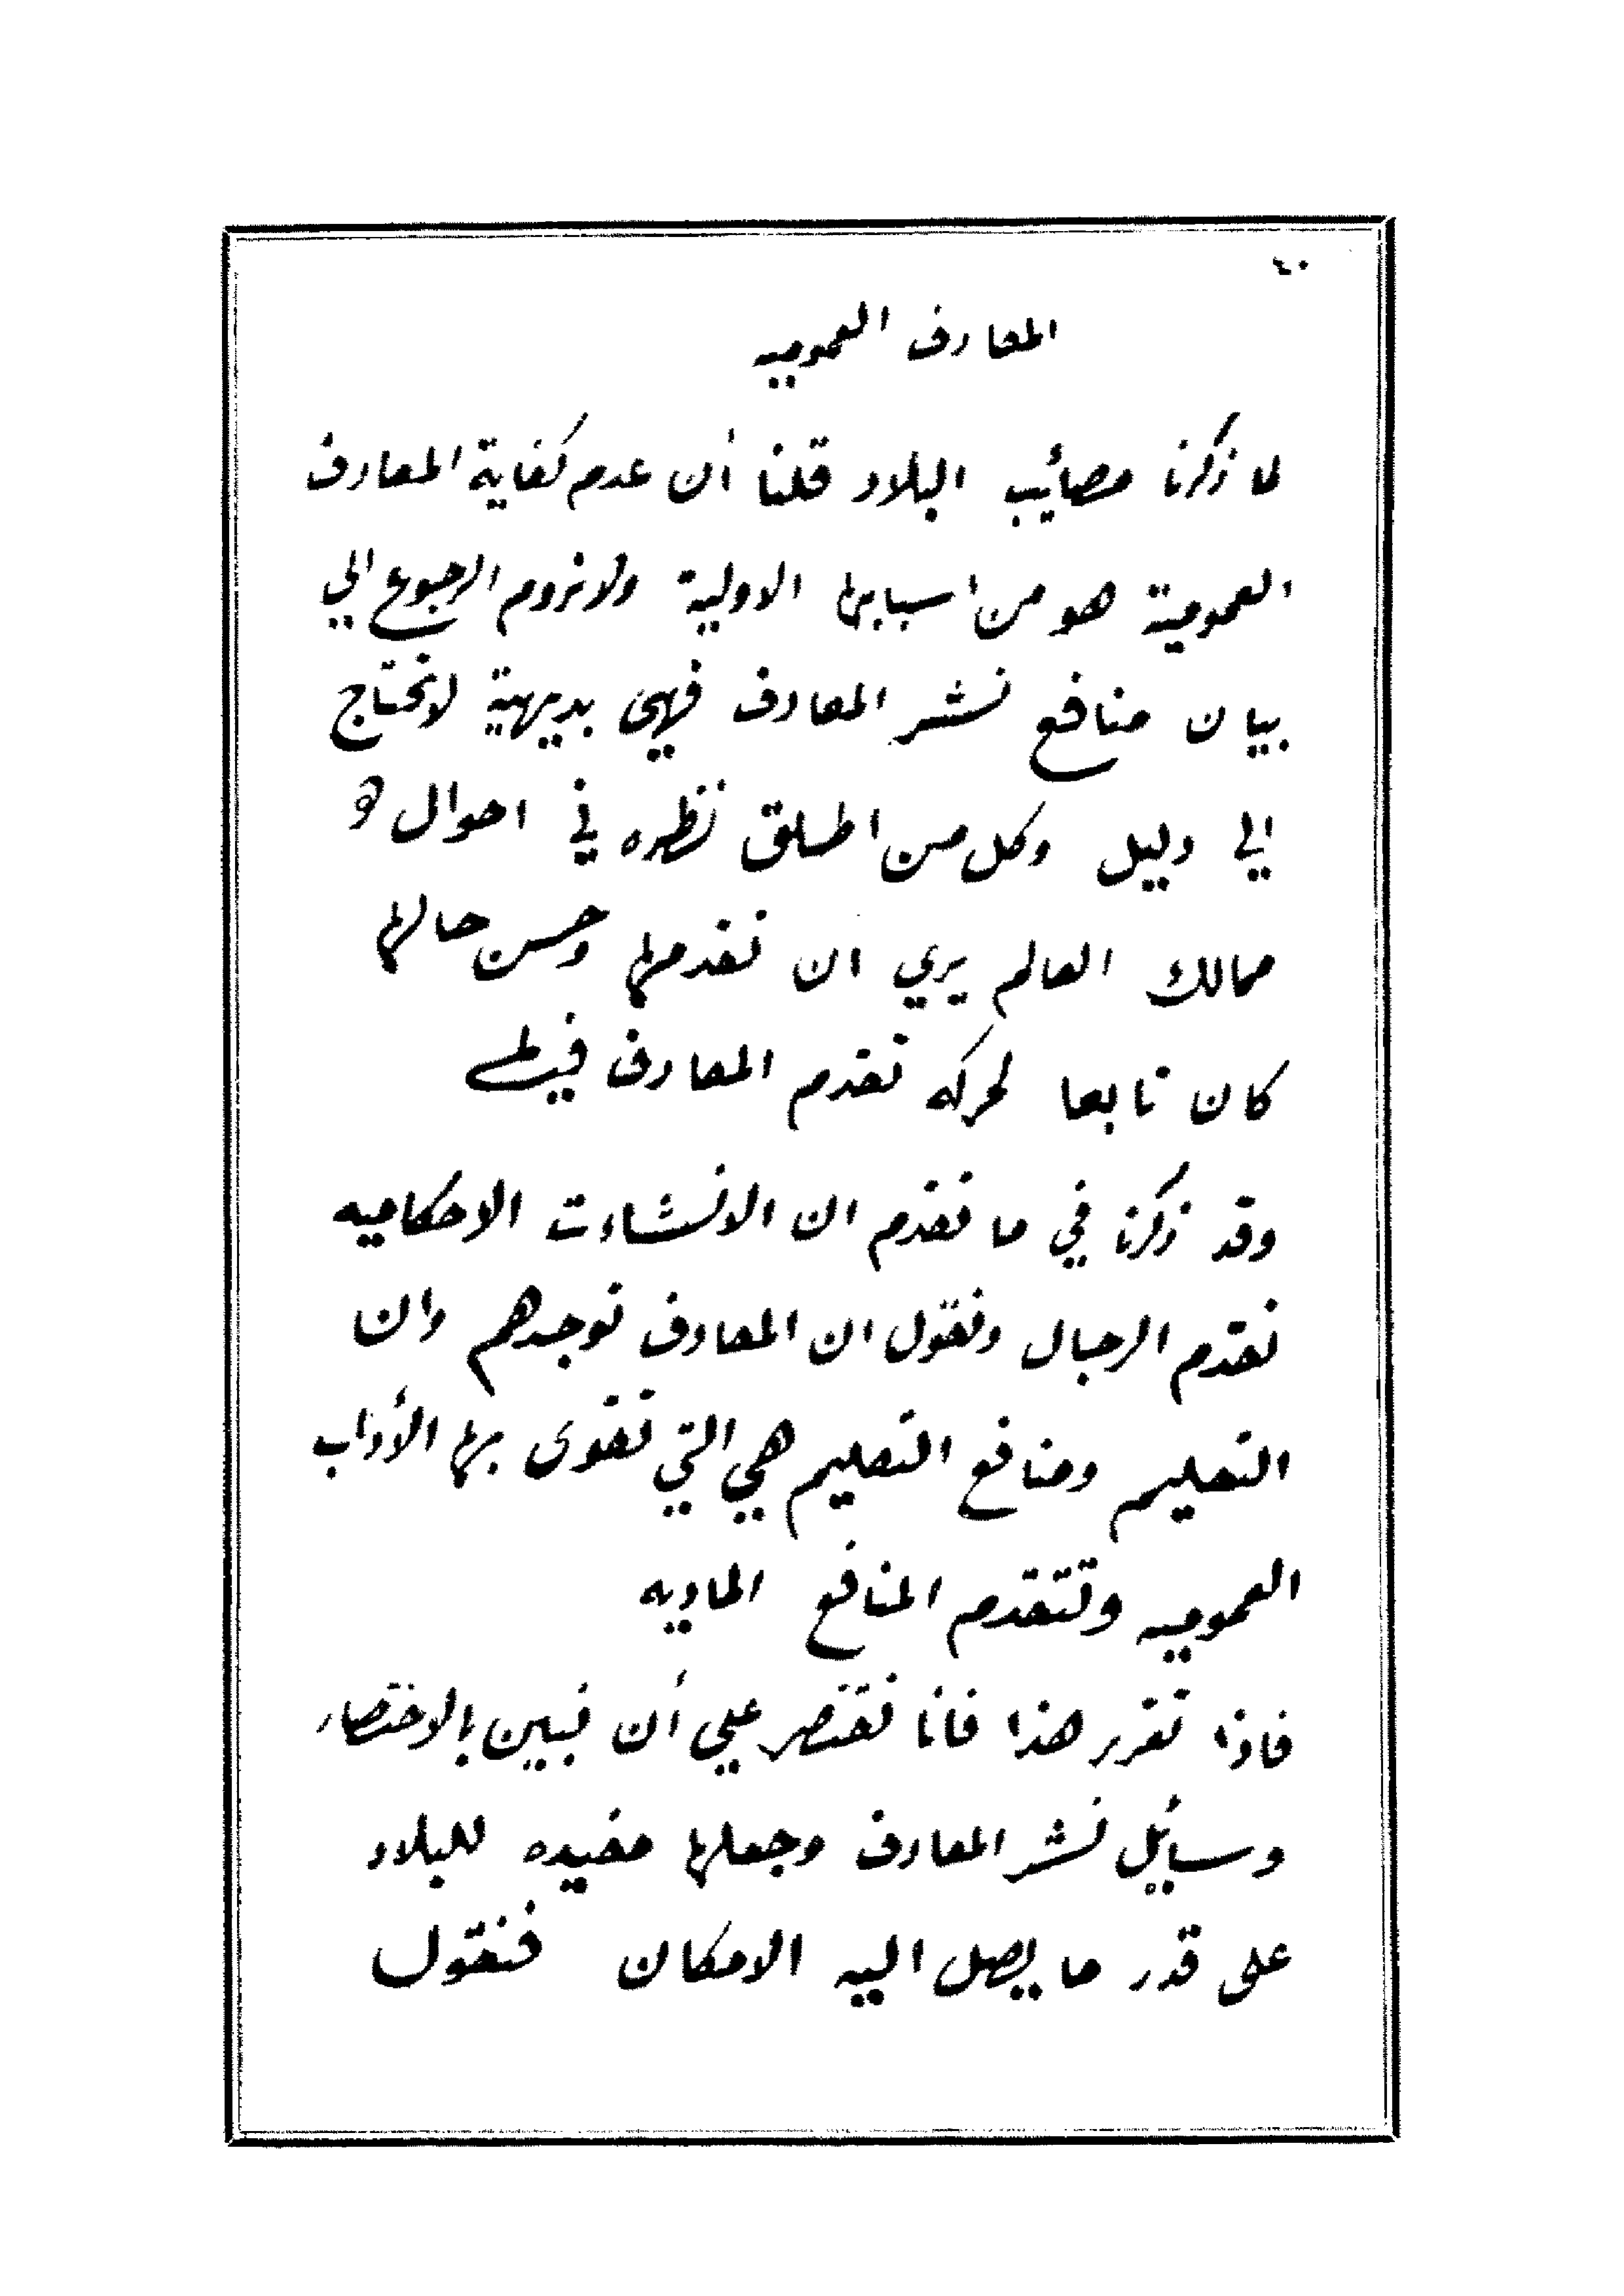 ٤٠
المعارف العموميه
لما ذكرنا مصائب البلاد قلنا أن عدم كفاية المعارف
العمومية هو من اسبابها الاولية ولا نروم الرجوع الي
بيان منافع نشر المعارف فهي بديهية لا تحتاج
الي دليل وكل من اطلق نظره في احوال
ممالك العالم يري ان تقدمها وحسن حالها
كان تابعا لحركه تقدم المعارف فيها
وقد ذكرنا في ما تقدم ان الانشاءت الاحكاميه
تقدم الرجال ونقول ان المعارف توجدهم وان
التعليم ومنافع التعليم هي التي تقوى بها الأداب
العموميه وتتقدم المنافع الماديه
فاذا تقرر هذا فانا نقتصر علي أن نبين بالاختصار
وسائل نشر المعارف وجعلها مفيده للبلاد
على قدر ما يصل اليه الامكان فنقول